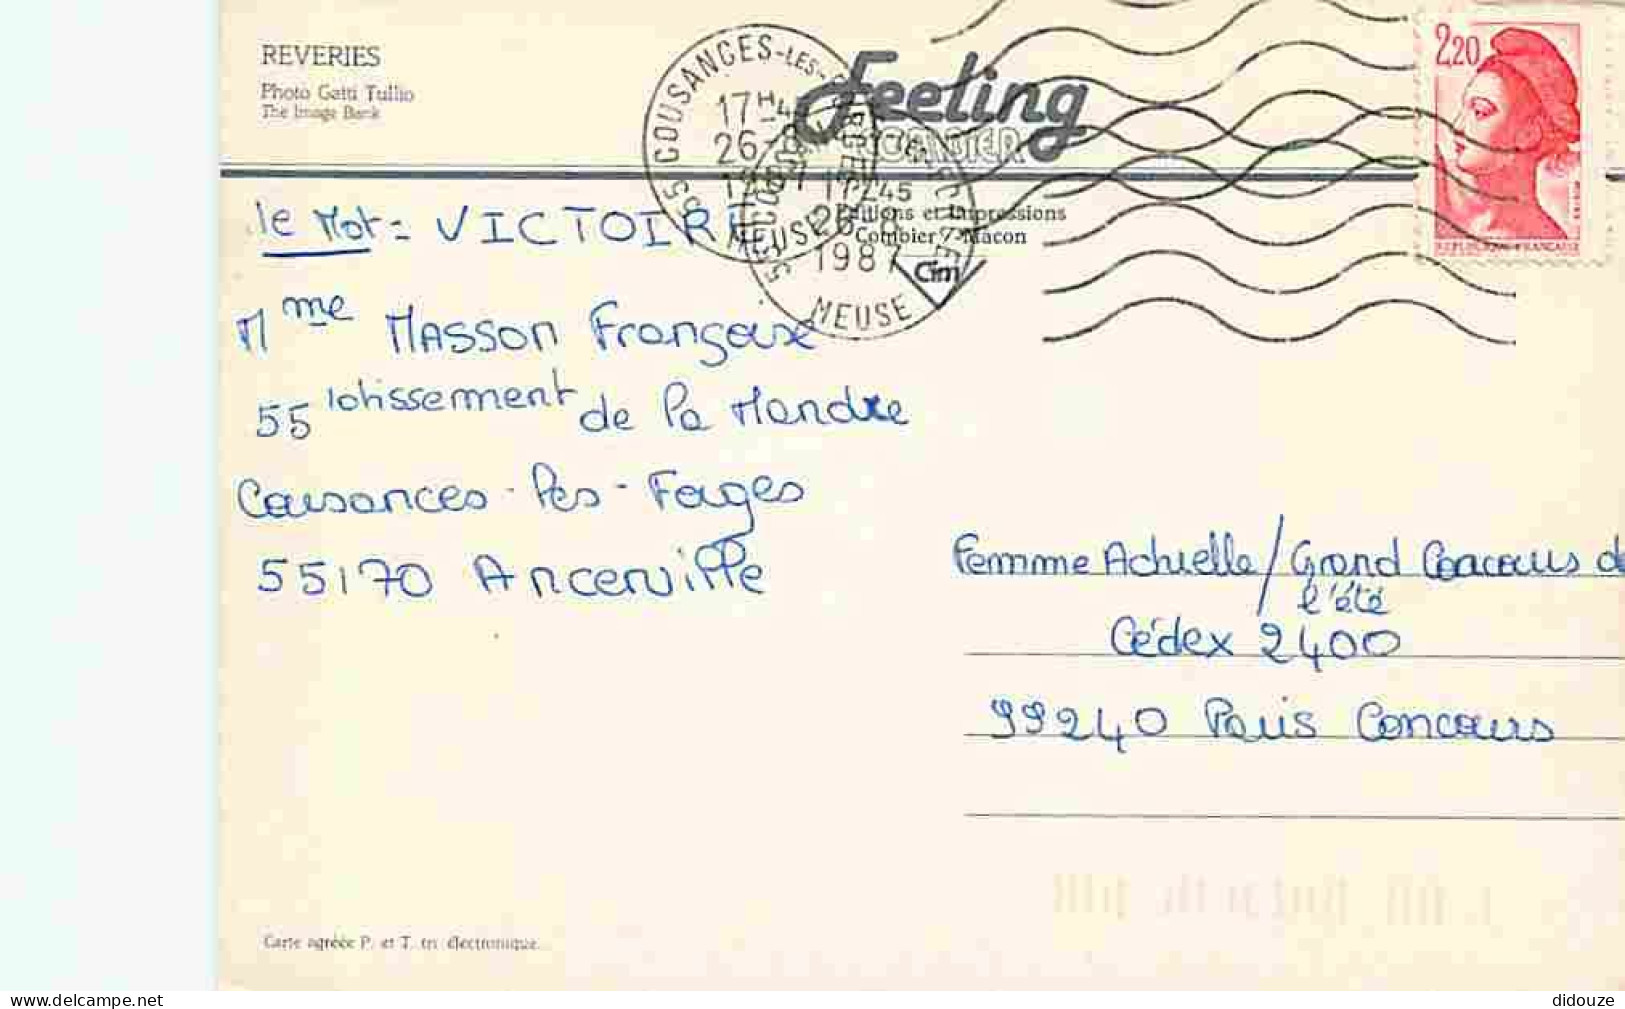 REVERIES
Photo Gatti Tullio
The Image Bank
Feeling
COMBIER
Editions et Impressions
Combier Macon
Cim
55 COUSANCES-LES-FORGES
17H45
26-8
1987
MEUSE
17H45
26
1987
MEUSE
2,20
REPUBLIQUE FRANCAISE
le Mot = VICTOIRE
Mme MASSON Françoise
55 lotissement de la Mandre
Cousances-les-Forges
55170 Ancerville
Femme Actuelle / Grand Concours de
l'été
Cédex 2400
99240 Paris Concours
Carte agréée P. et T. tri électronique.
delcampe.net
didouze